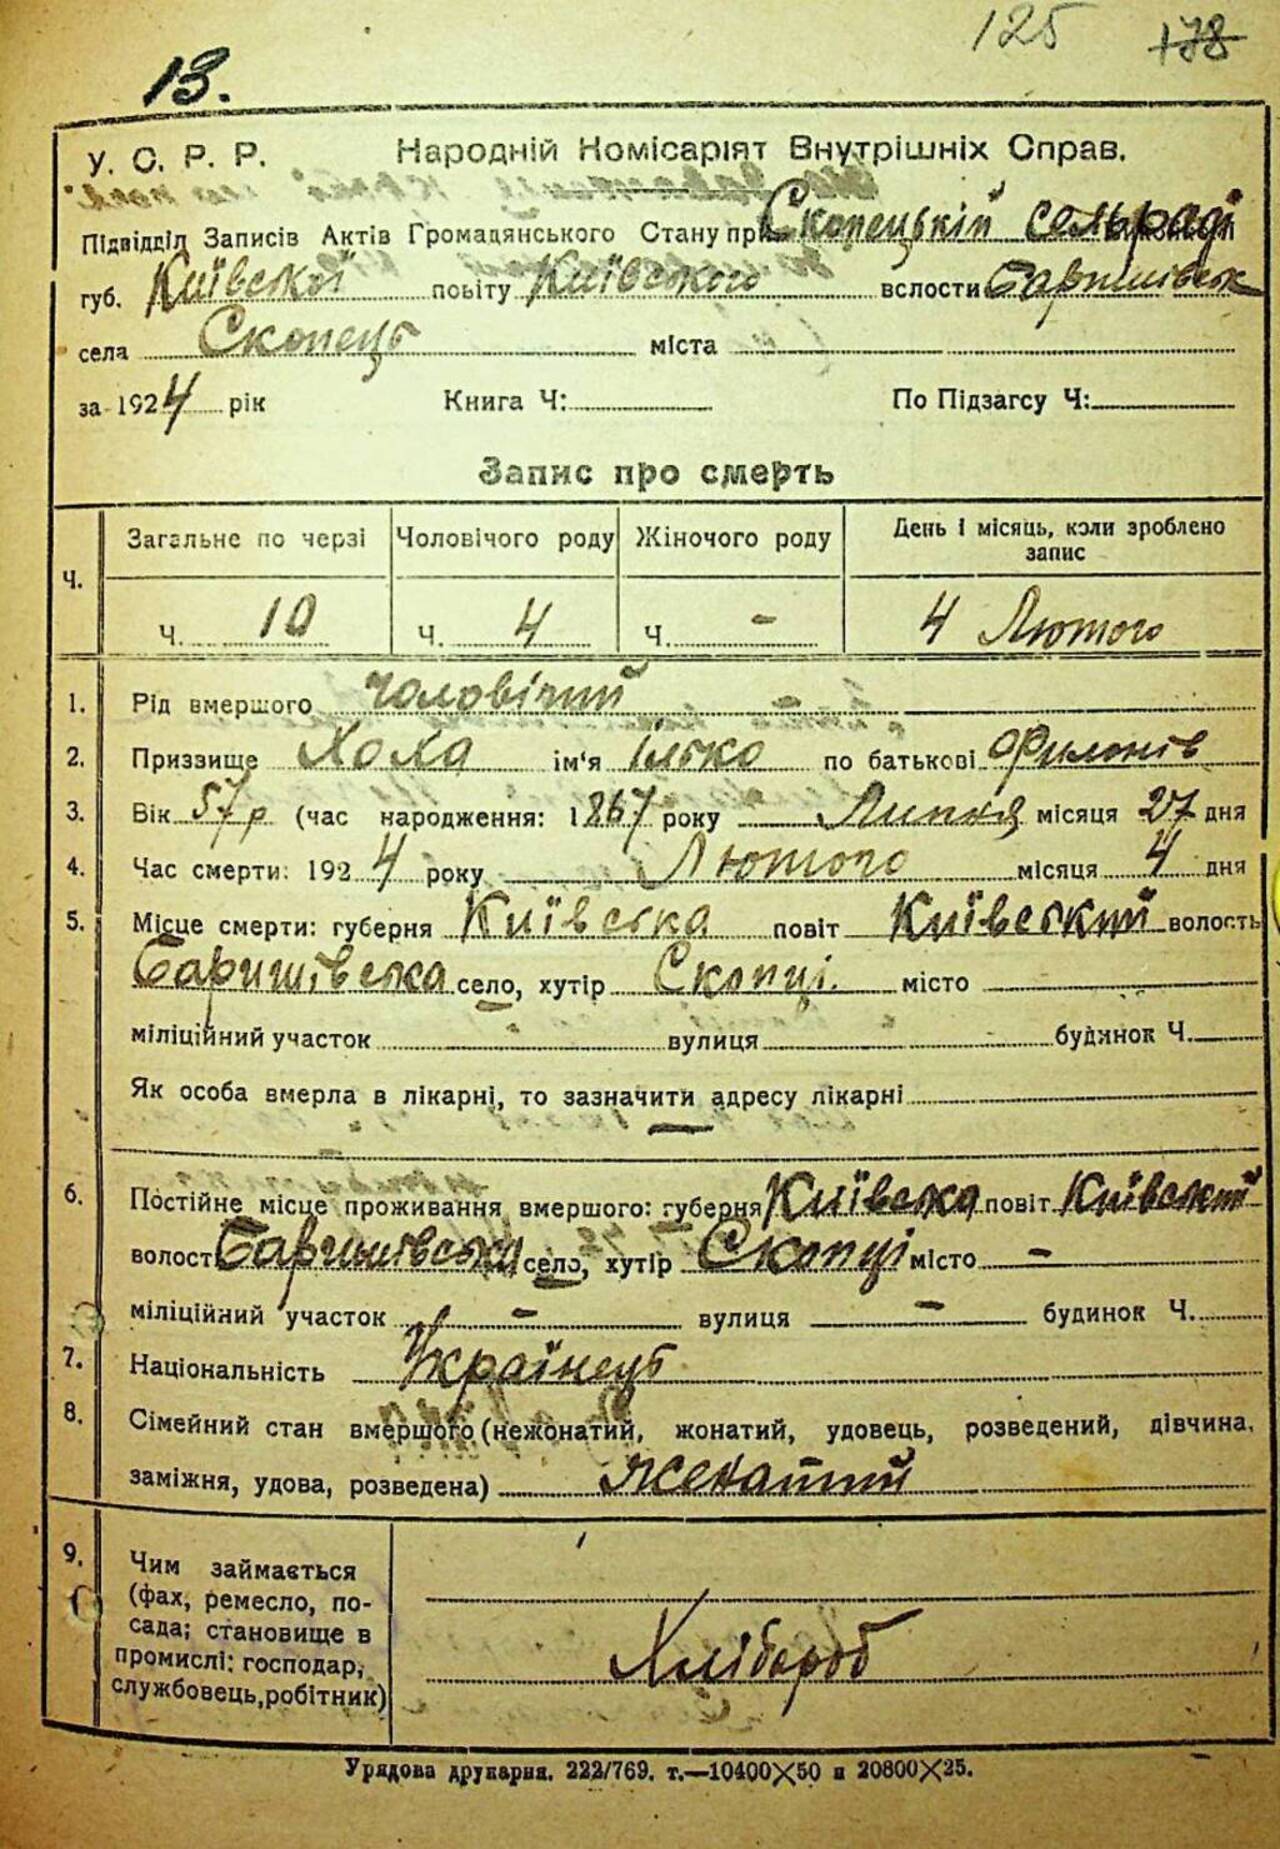 125 178
13.
У. С. Р. Р. Народній Комісаріят Внутрішніх Справ.
Підвідділ Записів Актів Громадянського Стану при Скопецькій сельраді
губ. Київської повіту Київського волости Баришівськ
села Скопець міста
за 1924 рік Книга Ч: По Підзагсу Ч:
Запис про смерть
Ч. Загальне по черзі Чоловічого роду Жіночого роду День і місяць, коли зроблено запис
Ч. 10 Ч. 4 Ч. - 4 Лютого
1. Рід вмершого Чоловічий -
2. Призвище Хоха ім'я Ілько по батькові Филонів
3. Вік 57 р (час народження: 1867 року Липня місяця 27 дня
4. Час смерти: 1924 року Лютого місяця 4 дня
5. Місце смерти: губерня Київська повіт Київський волость
Баришівська село, хутір Скопці. місто
міліційний участок вулиця будинок Ч.
Як особа вмерла в лікарні, то зазначити адресу лікарні
—
6. Постійне місце проживання вмершого: губерня Київська повіт Київський
волост Баришівська село, хутір Скопці місто -
міліційний участок - вулиця - будинок Ч.
7. Національність Українець
8. Сімейний стан вмершого (нежонатий, жонатий, удовець, розведений, дівчина,
заміжня, удова, розведена) Женатий
9. Чим займається
(фах, ремесло, по-
сада; становище в
промислі: господар,
службовець, робітник)
Хлібороб
Урядова друкарня. 222/769. т.—10400×50 и 20800×25.